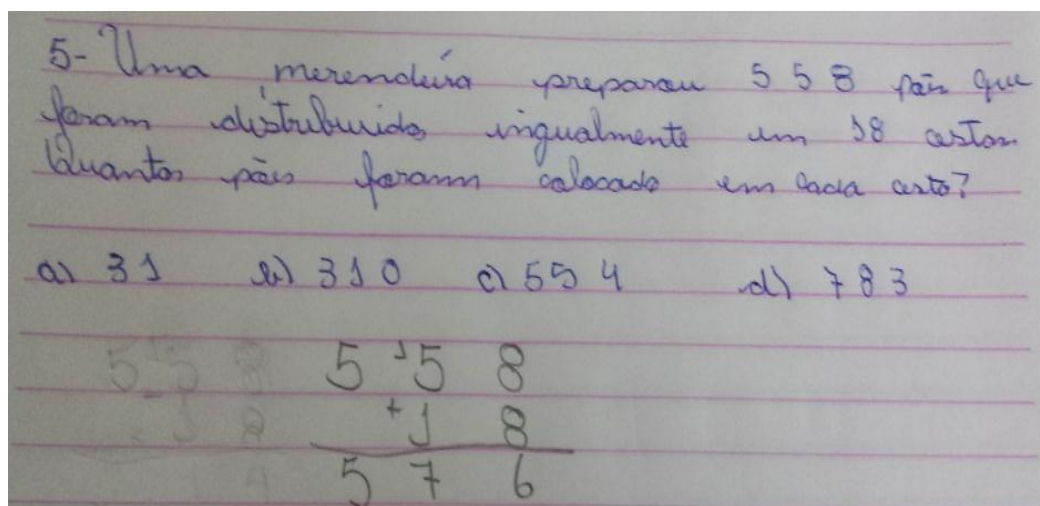 5- Uma merendeira preparou 558 pães que
foram distribuidos ingualmente em 18 cestos.
Quantos pães foram colocado em cada cesto?
a) 31 b) 310 c) 554 d) 783
5 ¹5 8
+1 8
5 7 6